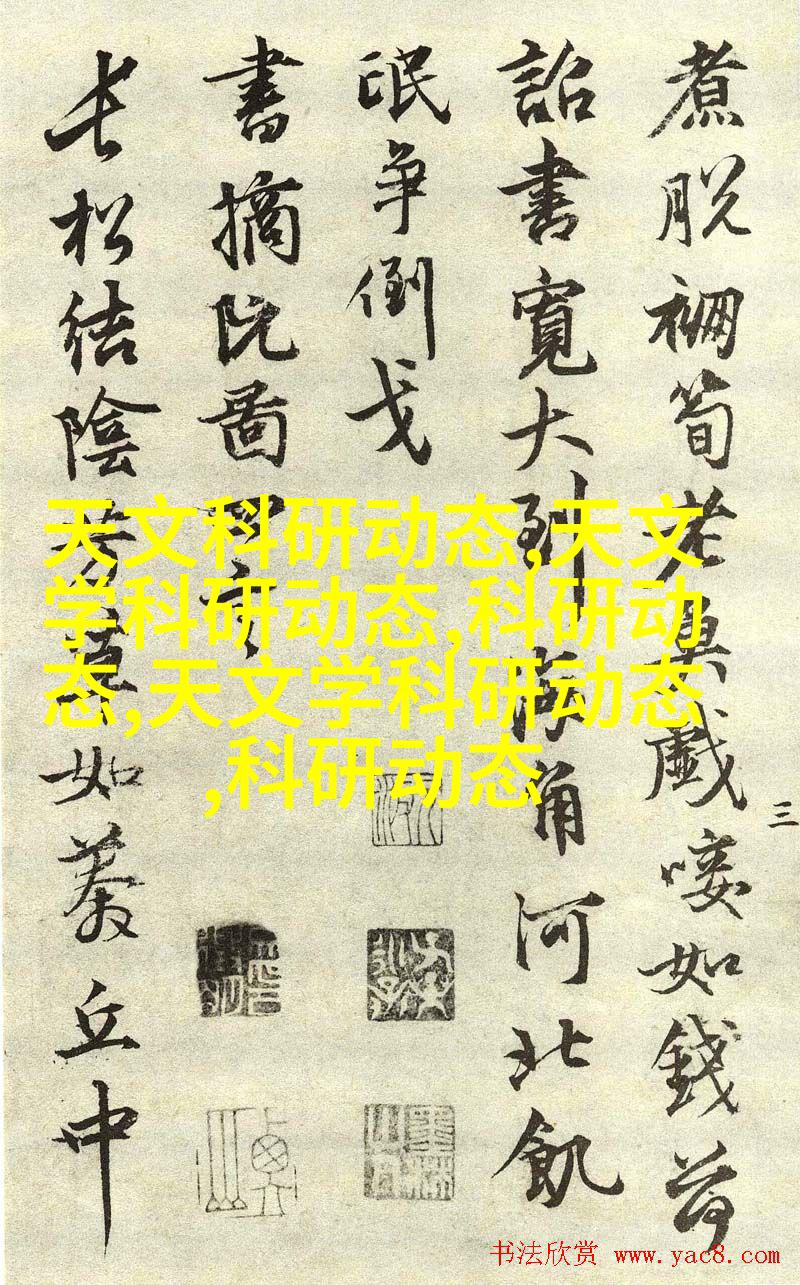 煮脱筍老戲唼如錢荷
詔書寬大到角河北飢
氓争倒戈
書摘阮圖
長松結陰如丘中
三
天文科研动态,天文
学科研动态,科研动
态,天文学科研动态
,科研动态
书法欣赏 www.yac8.com